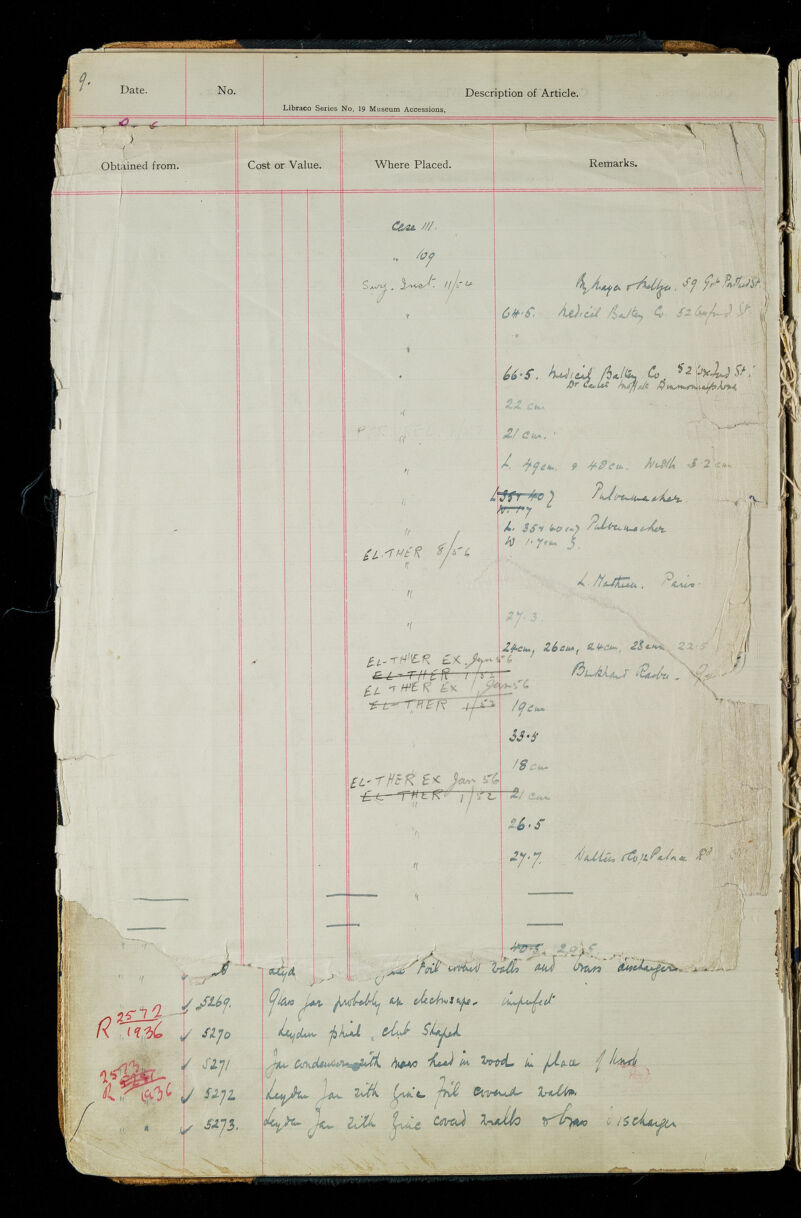 9.
Date. No. Description of Article.
Libraco Series No. 19 Museum Accessions.
Obtained from. Cost or Value. Where Placed. Remarks.
Case III.
" 109
Surg. Inst. 11/54 By Mayer & Meltzer. 59 Gt Portland St
" 64.5. Medical Battery Co. 52 Oxford St.
"
" 66.5. Medical Battery Co 52 Oxford St.
Dr Carter Moffat Ammoniaphone
" 22 cm
" 21 cm.
" L. 49cm. & 48cm. Width 3.2 cm
" L 35+ 40 } Pulvermacher
W. 1.7
" L. 35+ 40 cm } Pulvermacher
W 1.7cm
EL.THER 8/56
"
" L. Mathieu. Paris.
" 27.3.
24cm, 26cm, 24cm, 28cm 22.5
EL-THER EX. Jan 56
EL-THER 1/52
EL THER EX Jan 56
EL-THER 1/52 19cm
33.5
18 cm
EL-THER EX Jan 56
EL-THER 1/52 21 cm
" 26.5
" 27.7. Walters & Co, 12 Palace Rd
"
40.5. 20.5
foil covered walls and brass discharger
5269. Glass jar probably an electroscope. imperfect
R 2572/1936
5270 Leyden phial, club shaped
5271 Jar condenser with brass head in wood in place of knob
R 1936
5272 Leyden Jar with zinc foil covered walls
" 5273. Leyden Jar with zinc covered walls & brass discharger